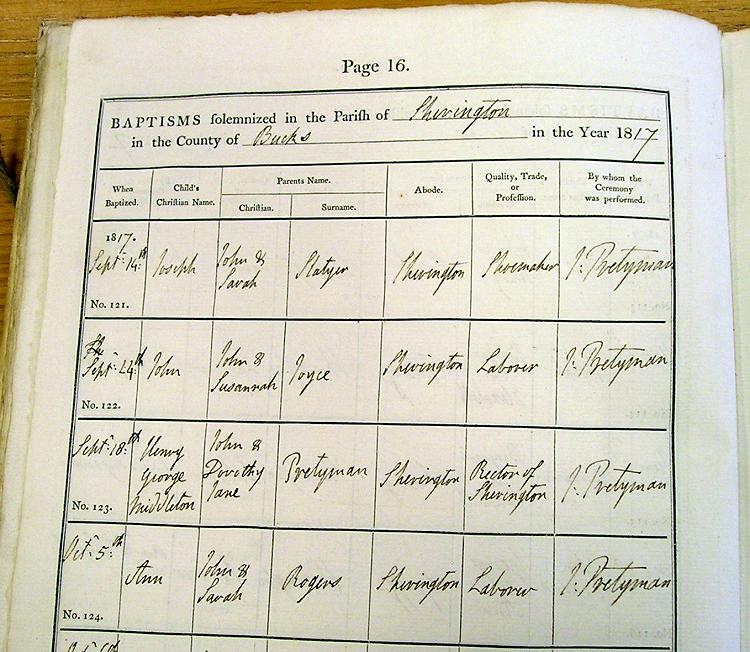 Page 16.
BAPTISMS solemnized in the Parish of Sherington
in the County of Bucks in the Year 1817
When Baptized.
Child's Christian Name.
Parents Name.
Christian.
Surname.
Abode.
Quality, Trade, or Profession.
By whom the Ceremony was performed.
1817.
Sept: 14:th
No. 121.
Joseph
John &
Sarah
Slatyer
Sherington
Shoemaker
J: Pretyman
Sept: 24:th
No. 122.
John
John &
Susannah
Joyce
Sherington
Laborer
J: Pretyman
Sept: 18:th
No. 123.
Henry
George
Middleton
John &
Dorothy
Jane
Pretyman
Sherington
Rector of
Sherington
J: Pretyman
Oct: 5:th
No. 124.
Ann
John &
Sarah
Rogers
Sherington
Laborer
J: Pretyman